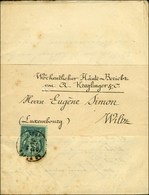 Wöchentlicher Häute-Bericht
von A. Kruglinger & Cº
Herrn Eugène Simon
(Luxembourg)
Wiltz